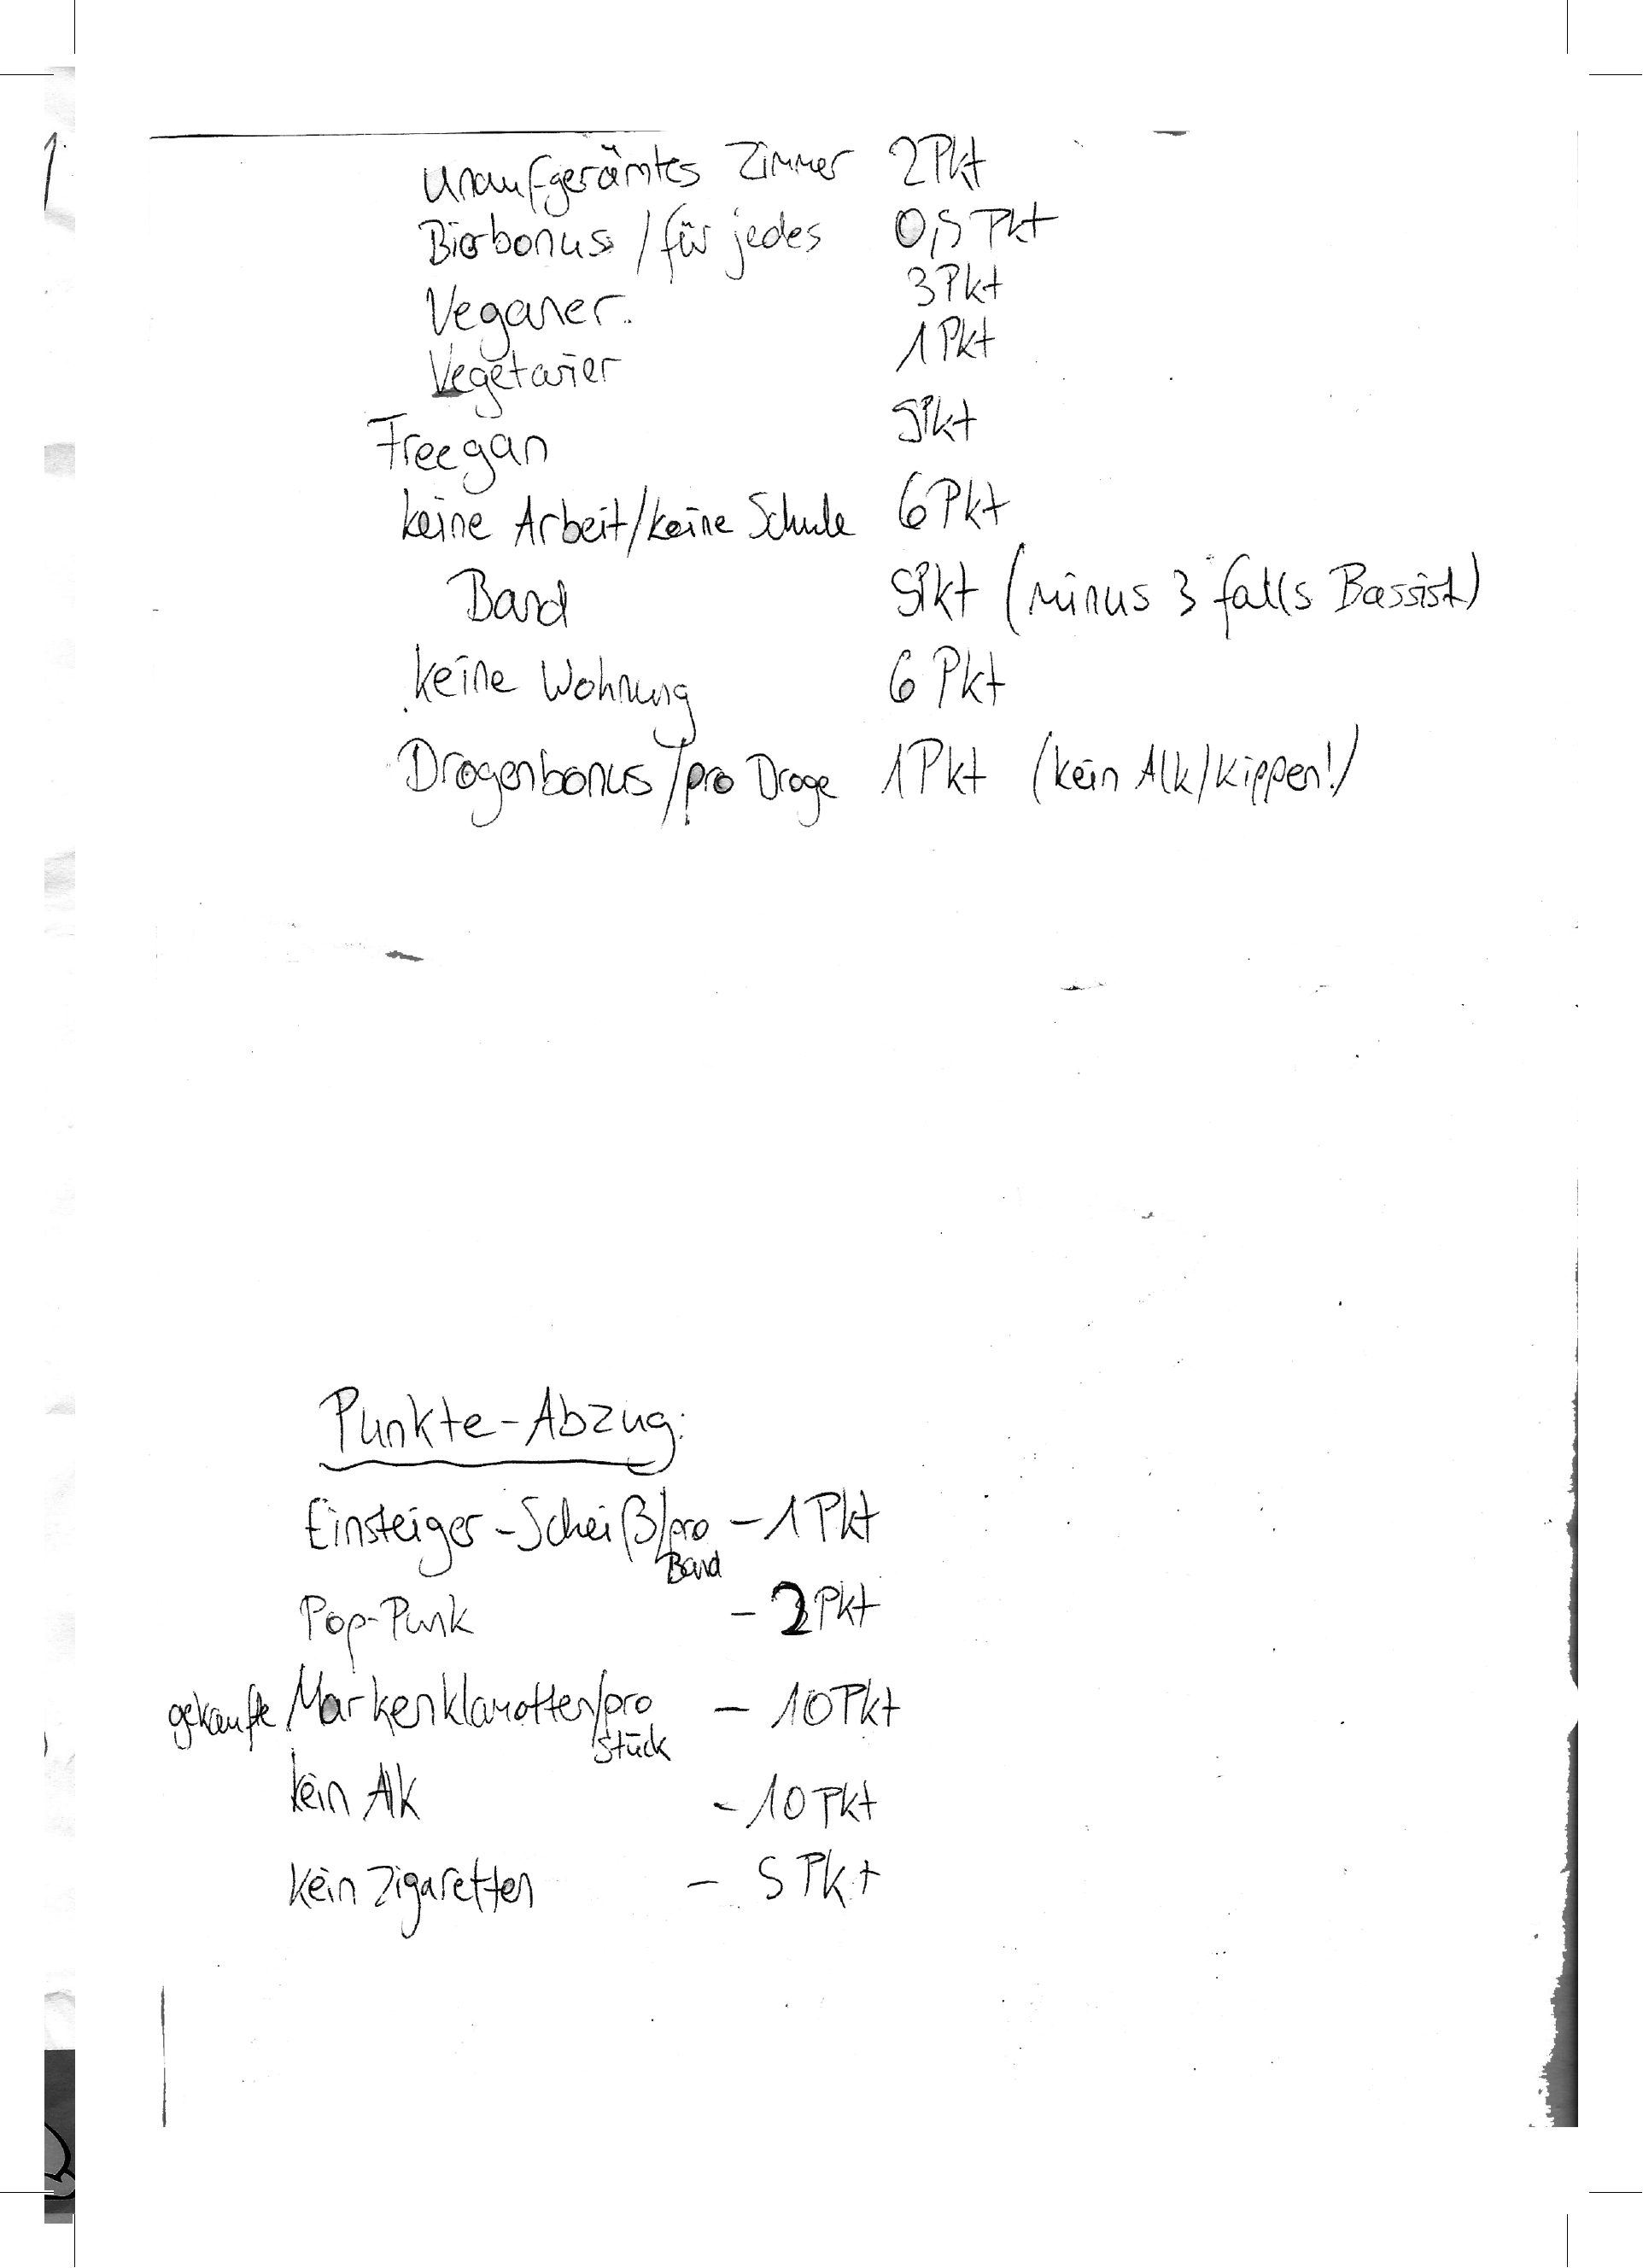 unaufgerämtes Zimmer 2Pkt
Bierbonus /für jedes 0,5 Pkt
Veganer 3Pkt
Vegetarier 1Pkt
Freegan 5Pkt
keine Arbeit/keine Schule 6Pkt
Band 5Pkt (minus 3 falls Bassist)
keine Wohnung 6 Pkt
Drogenbonus/pro Droge 1Pkt (kein Alk/Kippen!)
Punkte-Abzug:
Einsteiger-Scheiß/pro Band - 1 Pkt
Pop-Punk - 2Pkt
gekaufte Markenklamotten/pro Stück - 10Pkt
kein Alk - 10 Pkt
kein Zigaretten - 5 Pkt